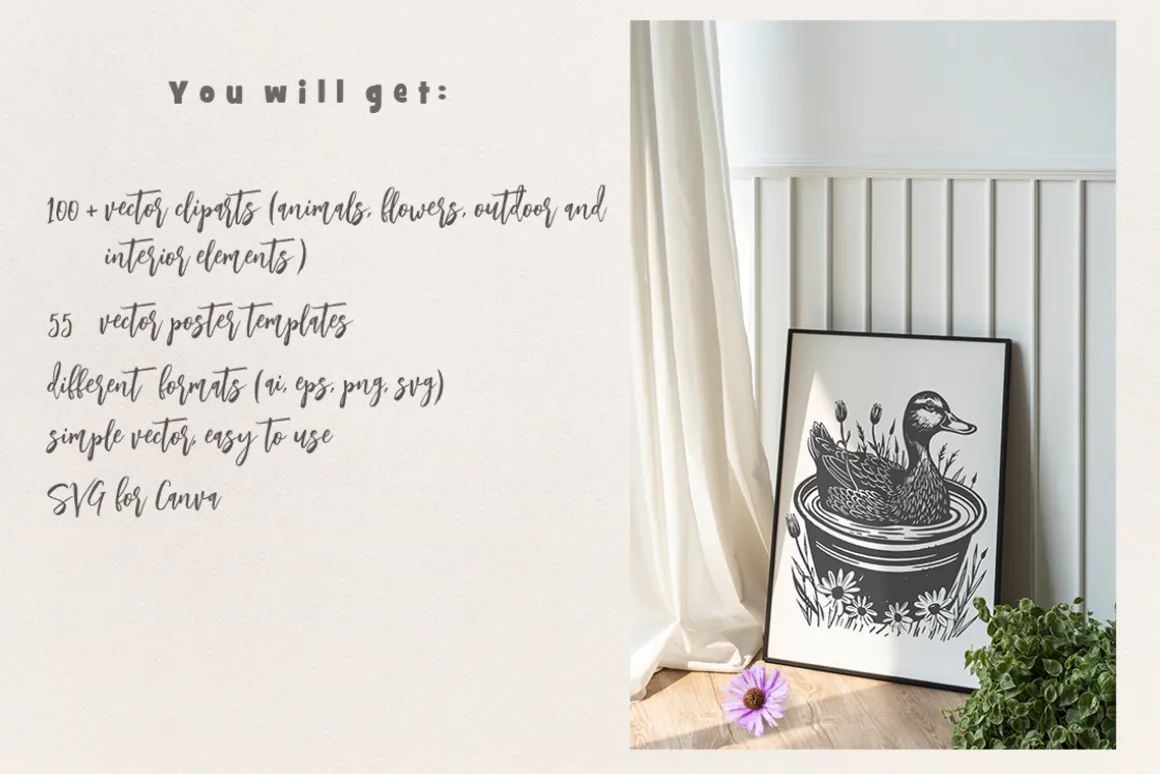 You will get:
100 + vector cliparts (animals, flowers, outdoor and
interior elements)
55 vector poster templates
different formats (ai, eps, png, svg)
simple vector, easy to use
SVG for Canva